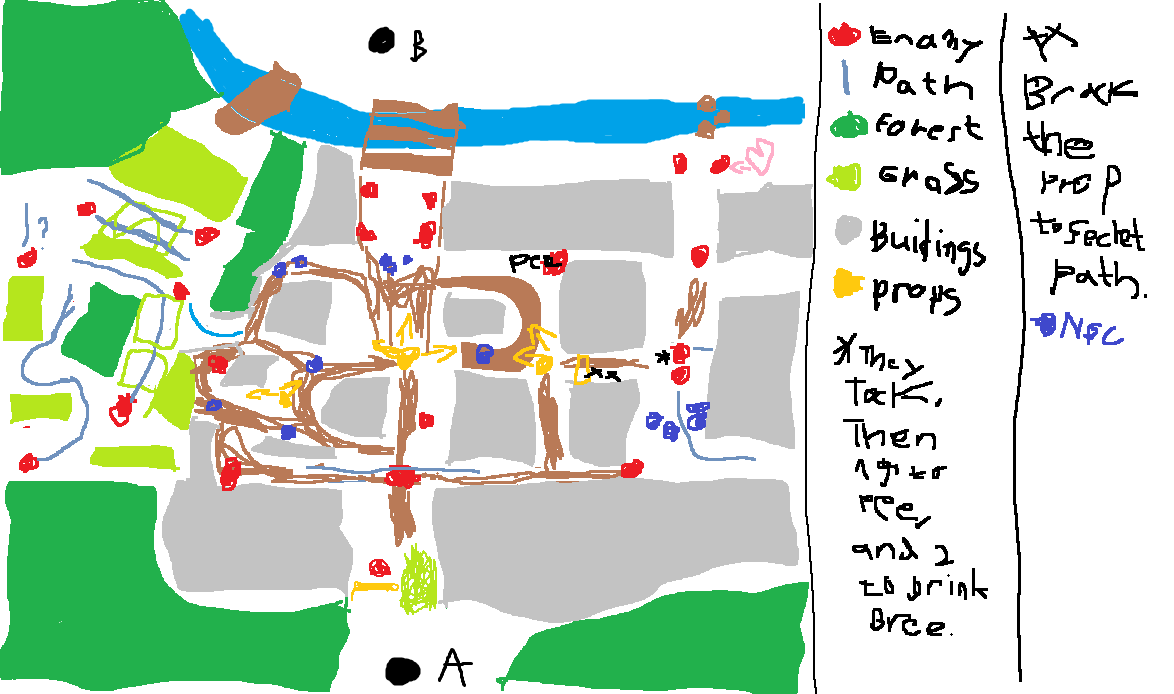 B
Enamy
Path
Forest
Grass
Buildings
props
*They
Talk,
Then
1 go to
Pee,
and 2
to Drink
Bree.
**
Break
the
prop
to secret
path.
NPC
??
Pee
*
**
A